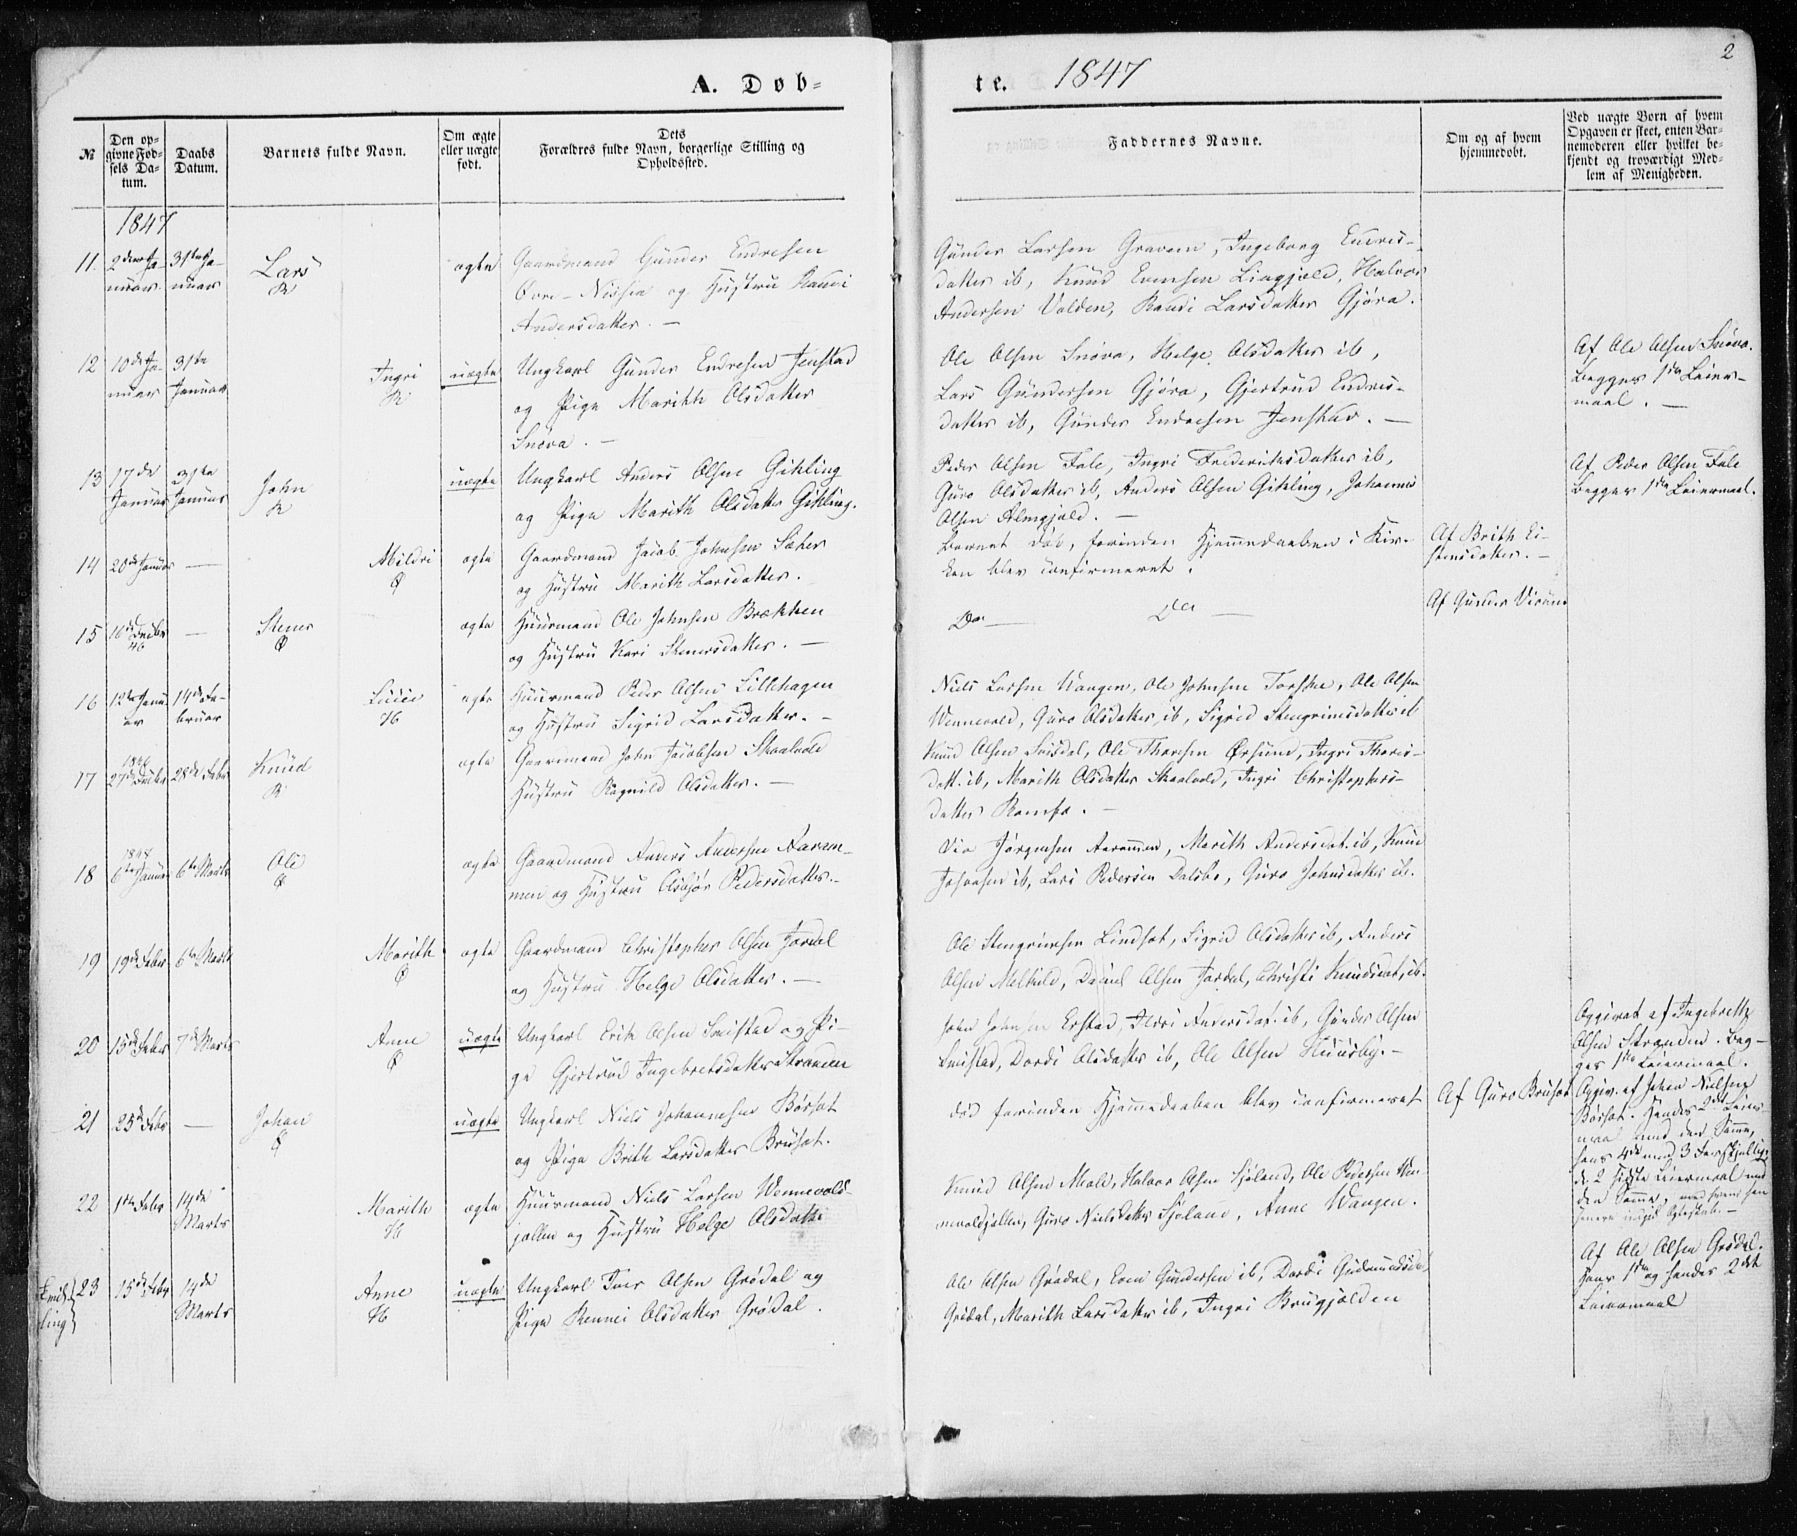 2
A. Døb=
te. 1847
№
Den op=
givne Fød=
sels Da=
tum.
Daabs
Datum.
Barnets fulde Navn.
Om ægte
eller uægte
født.
Dets
Forældres fulde Navn, borgerlige Stilling og
Opholdssted.
Faddernes Navne.
Om og af hvem
hjemmedøbt.
Ved uægte Børn af hvem
Opgaven er skeet, enten Bar=
nemoderen eller hvilket be=
kjendt og troværdigt Med=
lem af Menigheden.
1847
11.
2den Ja-
nuar
31te Ja-
nuar
Lars
R
ægte
Gaardmand Gunder Endresen
Øvre-Nissen og Hustru Randi
Andersdatter. —
Gunder Larsen Gravem, Ingeborg Endres-
datter ib, Knud Evensen Liagjeld, Halvor
Andersen Volden, Randi Larsdatter Gjøra.
12
10de Ja-
nuar
31te
Januar
Ingri
R
uægte
Ungkarl Gunder Endresen Jenstad
og Pige Marith Olsdatter
Snøva. —
Ole Olsen Snøva, Helge Olsdatter ib,
Lars Gundersen Gjøra, Gjertrud Endres-
datter ib, Gunder Endresen Jenstad. —
Af Ole Olsen Snøva.
Begges 1ste Leier-
maal. —
13
17de
Januar
31te
Januar
John
R
uægte
Ungkarl Anders Olsen Gikling
og Pige Marith Olsdatter Gikling.
Peder Olsen Fale, Ingri Frederiksdatter ib,
Guro Olsdatter ib, Anders Olsen Gikling, Johannes
Olsen Almgjeld. —
Af Peder Olsen Fale
Begges 1ste Leiermaal.
14
20de Januar
—
Mildri
Ø
ægte
Gaardmand Jacob Johnsen Sæter
og Hustru Marith Larsdatter. —
Barnet død, forinden Hjemmedaaben i Kir-
ken blev confirmeret.
Af Brith Ei-
stensdatter. —
15
16de Decbr
46
—
Stener
Ø
ægte
Huusmand Ole Johnsen Brækken
og Hustru Kari Stenersdatter. —
Do — Do —
Af Gunder
16
12te Janu-
ar
14de Fe-
bruar
H
ægte
Huusmand Peder Olsen Lillehagen
og Hustru Sigrid Larsdatter. —
Niels Larsen Wangen, Ole Johnsen Torske, Ole Olsen
Wennevold, Guro Olsdatter ib, Sigrid Stengrimsdatter ib
17
1846
27de Decbr
28de Febr
Knud
R
ægte
Gaardmand John Jacobsen Skaalvold
Hustru Ragnild Olsdatter. —
Knud Olsen Svisdal, Ole Thoresen Ørsund, Ingri Thores-
datt. ib, Marith Olsdatter Skaalvold, Ingri Christophers-
datter Romfo. —
18
6te Januar
6te Marts
Ole
Ø
ægte
Gaardmand Anders Andersen Aarem-
men og Hustru Asbjør Pedersdatter. —
Jørgensen Aarommen, Marith Andersdat. ib, Knud
Johnsen ib, Lars Pedersen Dalsbø, Guro Johnsdatter ib.
19
19de Febr
6te Marts
Marith
Ø
ægte
Gaardmand Christopher Olsen Jordal
og Hustru Helge Olsdatter. —
Ole Stengrimsen Lindset, Sigrid Olsdatter ib, Anders
Olsen Melkild, Daniel Olsen Jordal, Christi Knudsdat. ib.
20
15de Febr
7de Marts
Anne
Ø
uægte
Ungkarl Erik Olsen Smistad og Pi-
ge Gjertrud Ingebretsdatter Stranden
John Johnsen Erstad, Andersdat. ib, Gunder Olsen
Smistad, Dordi Olsdatter ib, Ole Olsen Huusby. —
Opgivet af Ingebrett
Olsen Stranden. Beg-
ges 1ste Leiermaal.
21
25de Febr
—
Johan
Ø
uægte
Ungkarl Niels Johannesen Børset
og Pige Brith Larsdatter Bruset.
død forinden Hjemmedaaben blev confirmeret
Af Guro Bruset
Opgiv. af Johan Nielsen
Børset. Hendes 2det Leier-
maal med den Samme,
hans 4de med 3 Forskjellige
de 2 sidste Leiermaal med
den Samme, med hvem han
senere indgik Egteskab. —
22
1ste Febr
14de
Marts
Marith
H
ægte
Huusmand Niels Larsen Wennevolds-
jællen og Hustru Helge Olsdatter
Knud Olsen Mæle, Halvor Olsen Sjøland, Ole Pedersen Wen-
nevoldsjællen, Guro Nielsdatter Sjøland, Anne Wangen.
23
15de Febr
14de
Marts
Anne
H
uægte
Ungkarl Iver Olsen Grødal og
Pige Rennei Olsdatter Grødal.
Ole Olsen Grødal, Even Gundersen ib, Dordi Gudmundsdat.
Grødal, Marith Larsdatter ib, Ingri Brugjelden
Af Ole Olsen Grødal.
Hans 1ste og hendes 2det
Leiermaal